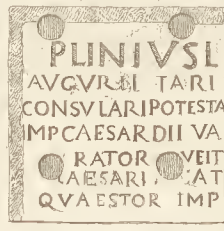 PLINIVS L
AVGVR L TARI
CONSVLARI POTESTA
IMP CAESAR DII VA
RATOR VEIT
AESARI AT
QVAESTOR IMP